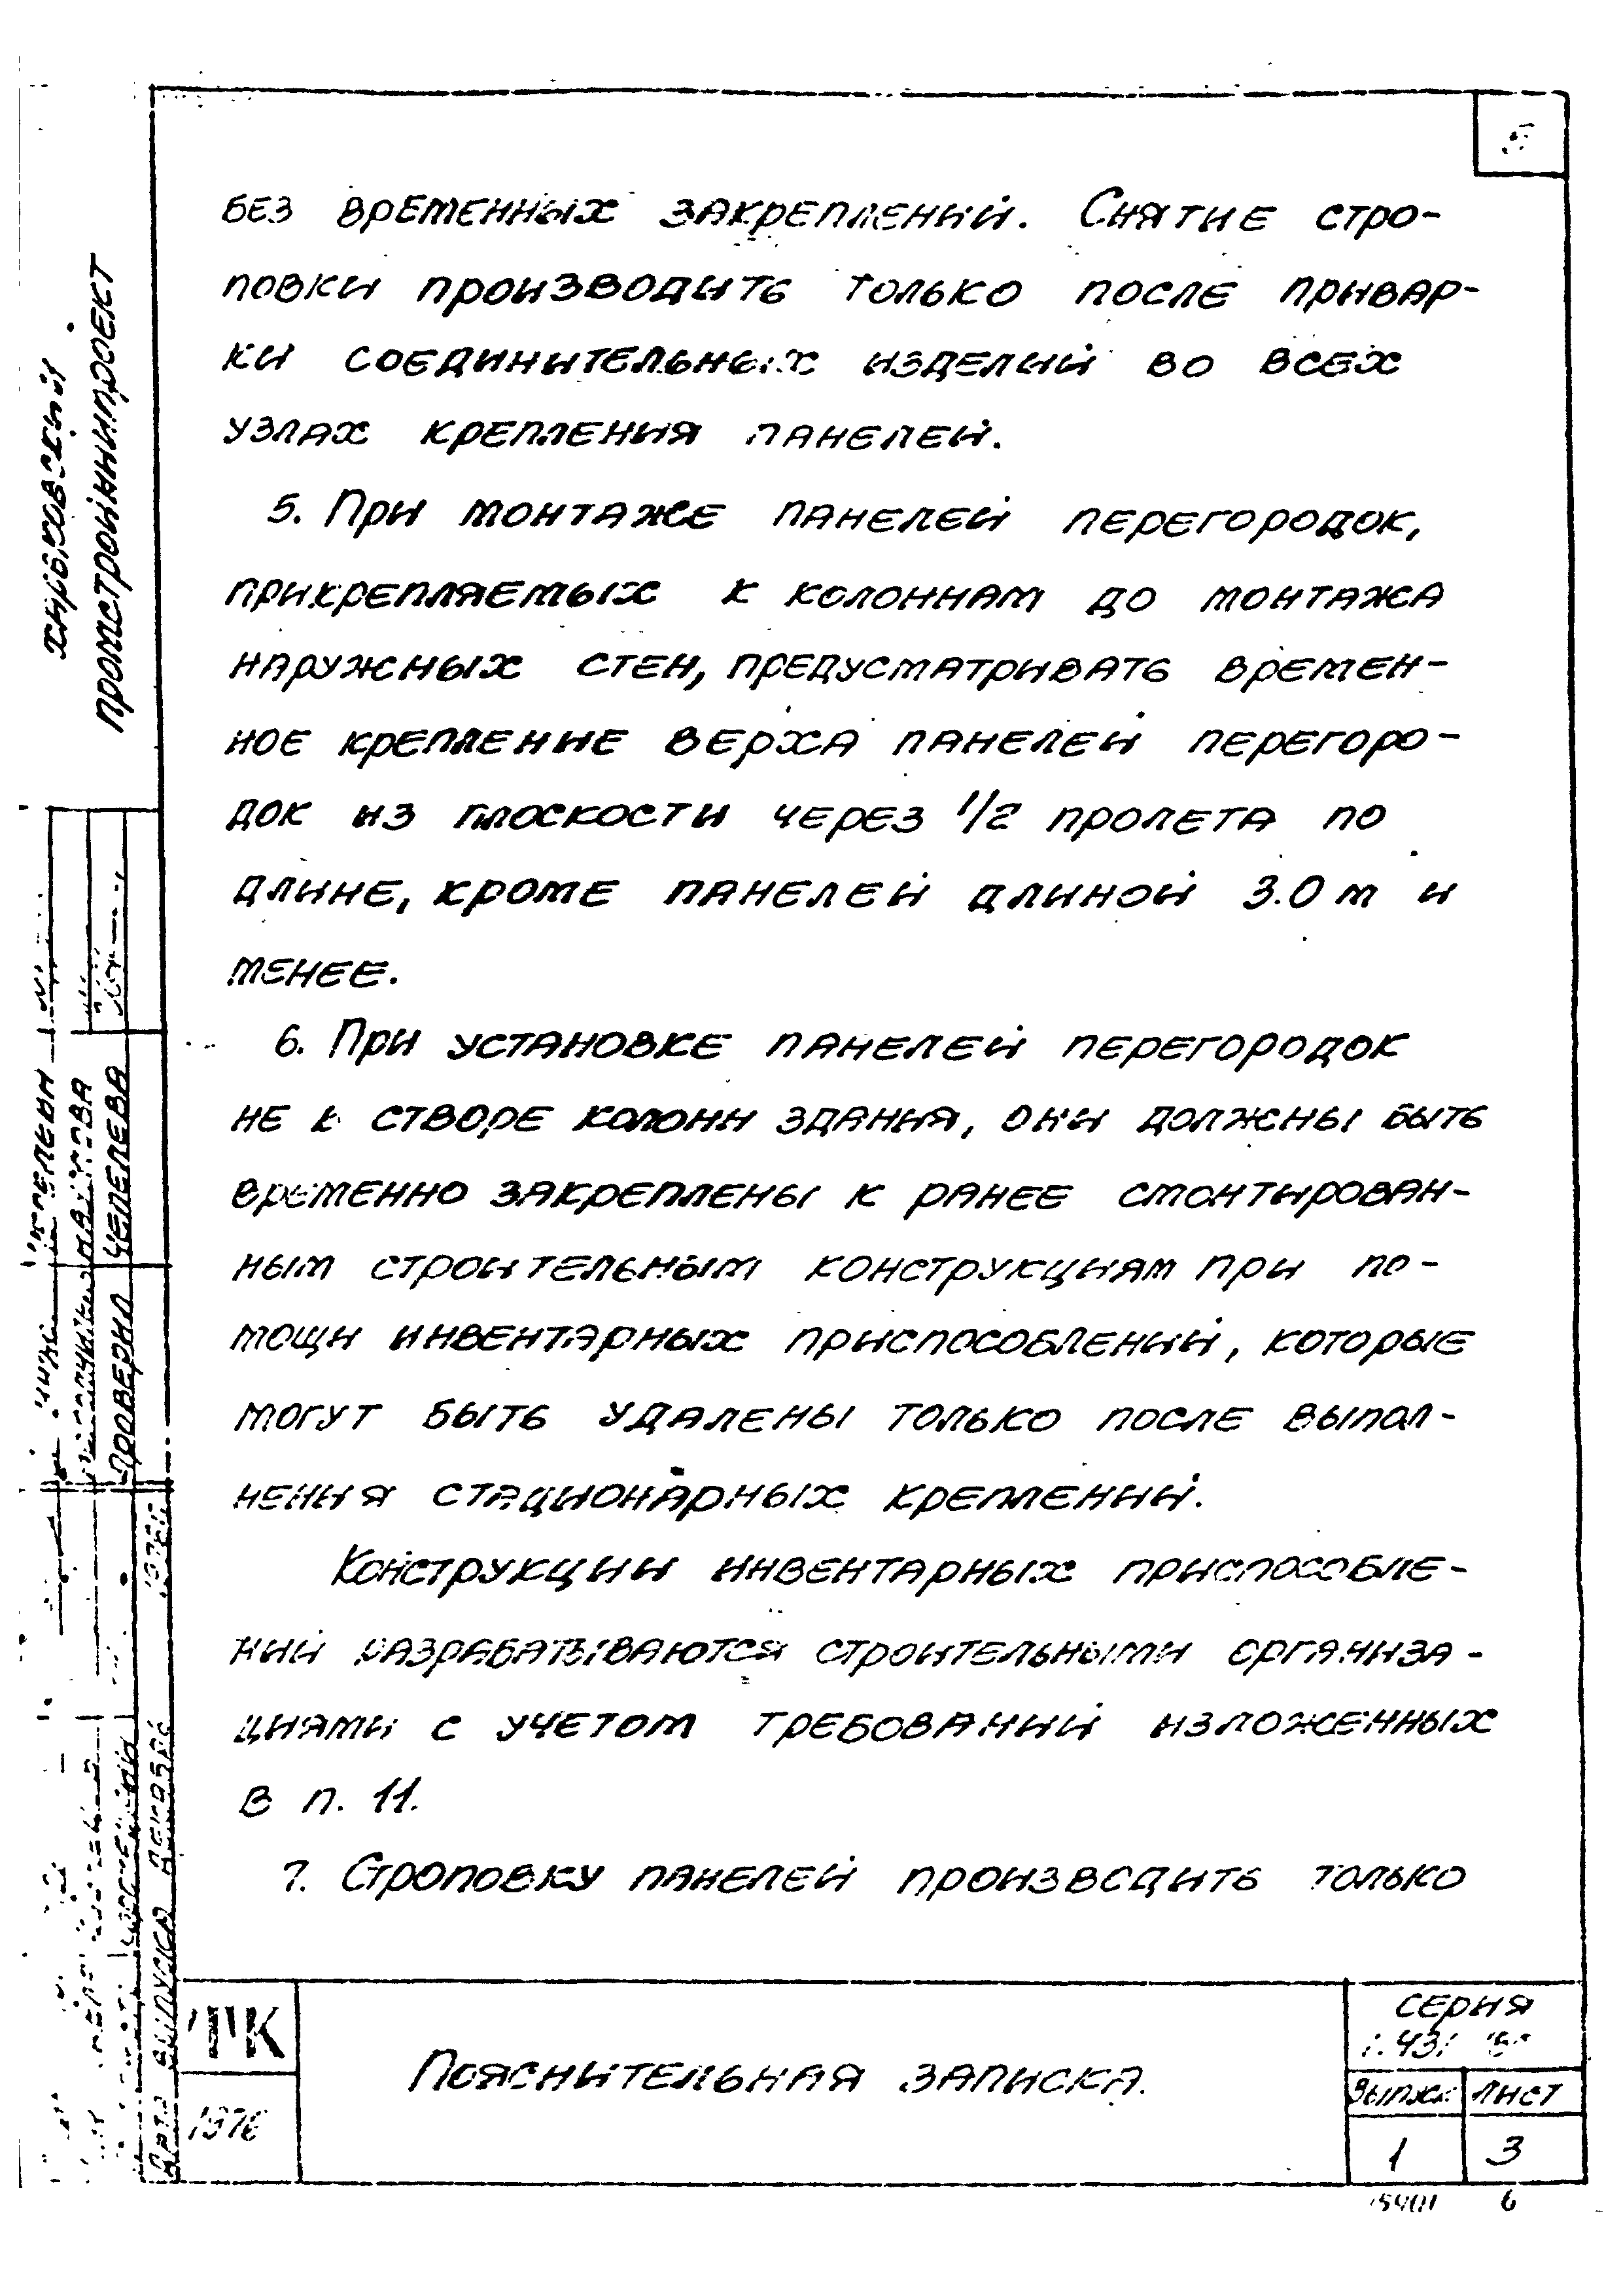 5
без временных закреплений. Снятие стро-
повки производить только после привар-
ки соединительных изделий во всех
узлах крепления панелей.
5. При монтаже панелей перегородок,
прикрепляемых к колоннам до монтажа
наружных стен, предусматривать времен-
ное крепление верха панелей перегоро-
док из плоскости через 1/2 пролета по
длине, кроме панелей длиной 3.0 м и
менее.
6. При установке панелей перегородок
не в створе колонн здания, они должны быть
временно закреплены к ранее смонтирован-
ным строительным конструкциям при по-
мощи инвентарных приспособлений, которые
могут быть удалены только после выпол-
нения стационарных креплений.
Конструкции инвентарных приспособле-
ний разрабатываются строительными организа-
циями с учетом требований изложенных
в п. 11.
7. Строповку панелей производить только
Харьковский
Промстройниипроект
Проверил Чепелева
Дата выпуска декабрь
ТК
1976
Пояснительная записка.
серия
Выпуск Лист
1 3
15401 6